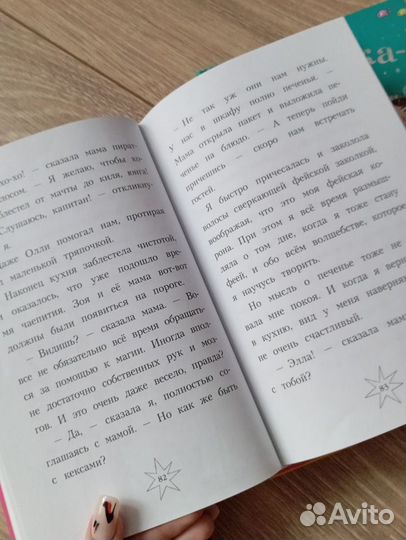 хо-хо! — сказала мама пират-
лосом. — Я желаю, чтобы ко-
блестел от мачты до киля, юнга!
Слушаюсь, капитан! — откликну-
я.
аже Олди помогал нам, протирая
маленькой тряпочкой.
Наконец кухня заблестела чистотой,
оказалось, что уже подошло вре-
мя чаепития. Зоя и её мама вот-вот
должны были появиться на пороге.
— Видишь? — сказала мама. — Во-
все не обязательно всё время обращать-
ся за помощью к магии. Иногда впол-
не достаточно собственных рук и моз-
гов. И это очень даже весело, правда?
— Да, — сказала я, полностью со-
глашаясь с мамой. — Но как же быть
с кексами?
82
— Не так уж они нам нужны.
у нас в шкафу полно печенья. —
Мама открыла пакет и выложила пе-
ченье на блюдо. — А теперь пойди
причешись — скоро нам встречать
гостей.
Я быстро причесалась и заколола
волосы сверкающей фейской заколкой,
воображая, что это моя фейская ко-
рона. При этом я всё время размыш-
ляла о том дне, когда я тоже стану
феей, и обо всём волшебстве, которое
я научусь творить.
Но мысль о печенье тоже не
вала мне покоя. И когда я верну
в кухню, вид у меня наверняк
не очень счастливый.
— Элла! — сказала мам
с тобой?
83
ка-
Avito